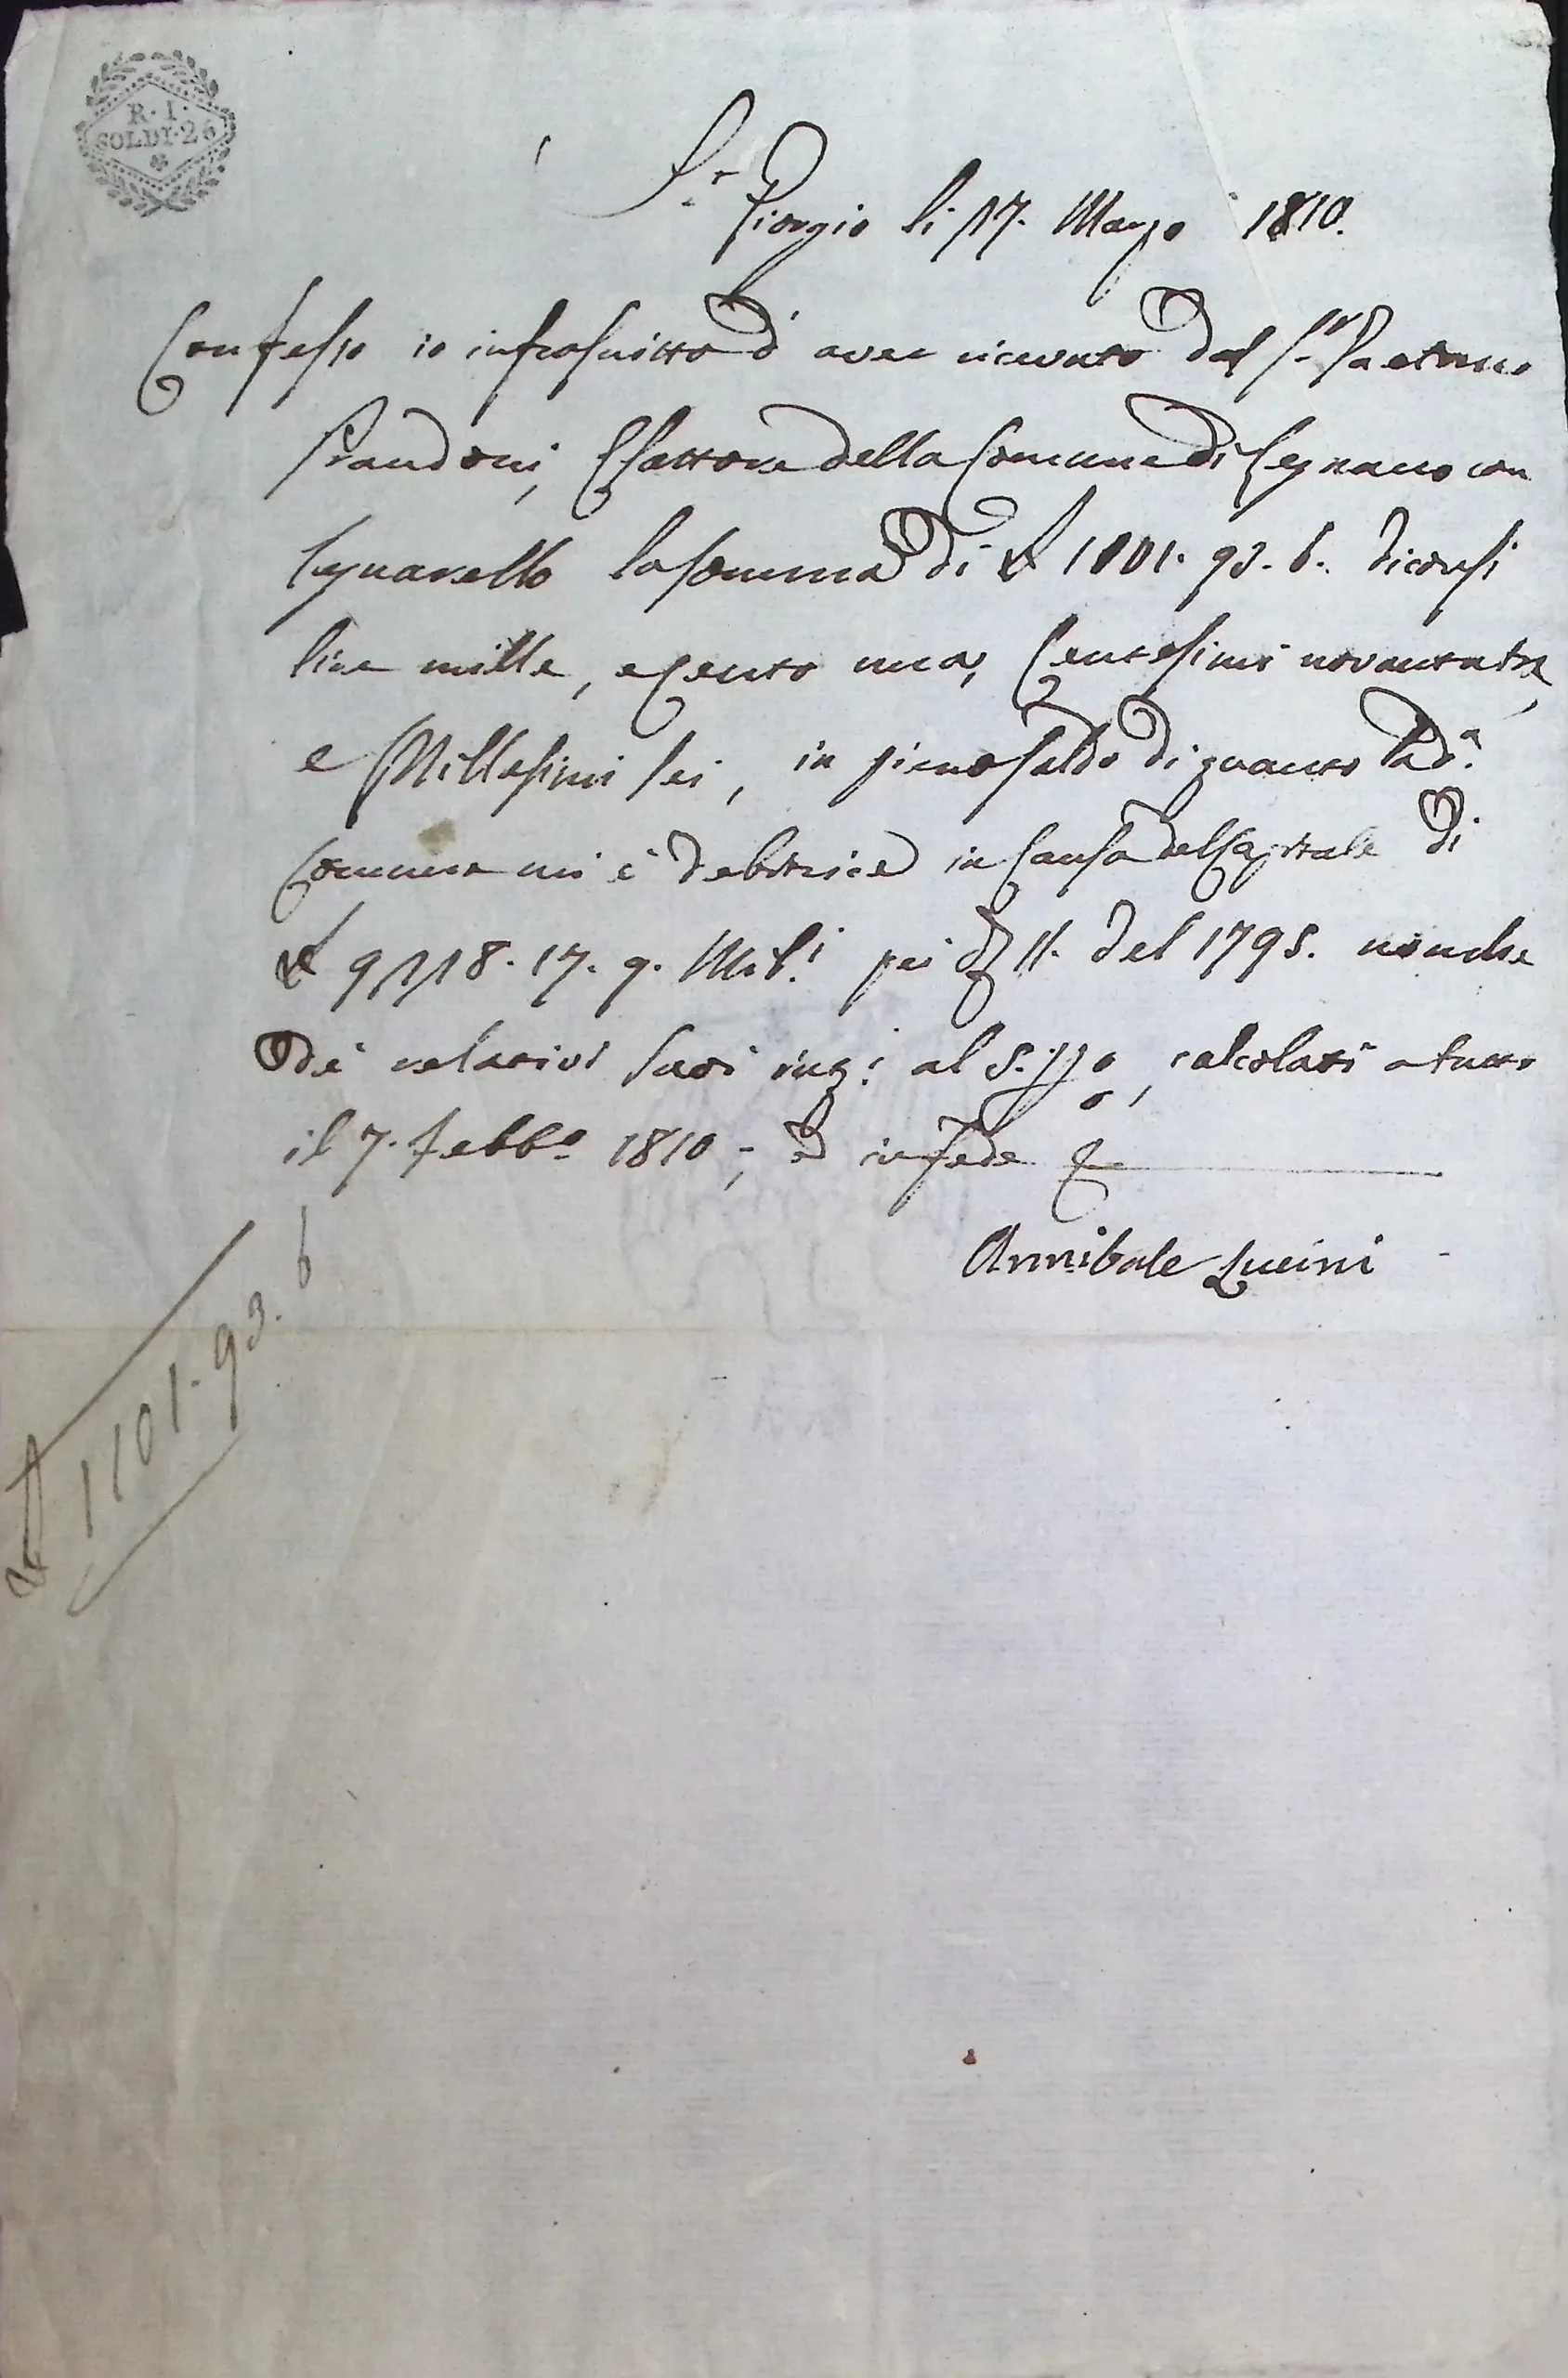 R. I.
SOLDI. 26
S.r Giorgio li 17. Marzo 1810.
Confesso io infrascritto d'aver ricevuto dal S.r Gaetano
Prandoni, Esattore della Comune di Legnano con
Legnarello la somma di £ 1101. 93. 6. dicansi
lire mille, e cento una, Centesimi novantatre,
e Millesimi sei, in pieno saldo di quanto la d.a
Comune mi è debitrice in Causa del Capitale di
£ 9118. 17. 9. Mil.i pei 11. del 1795. nonche
de' relativi suoi al 5. p% calcolati a tutto
il 7. Febb.o 1810 -; ed in fede
Annibale Lucini
£ 1101. 93. 6